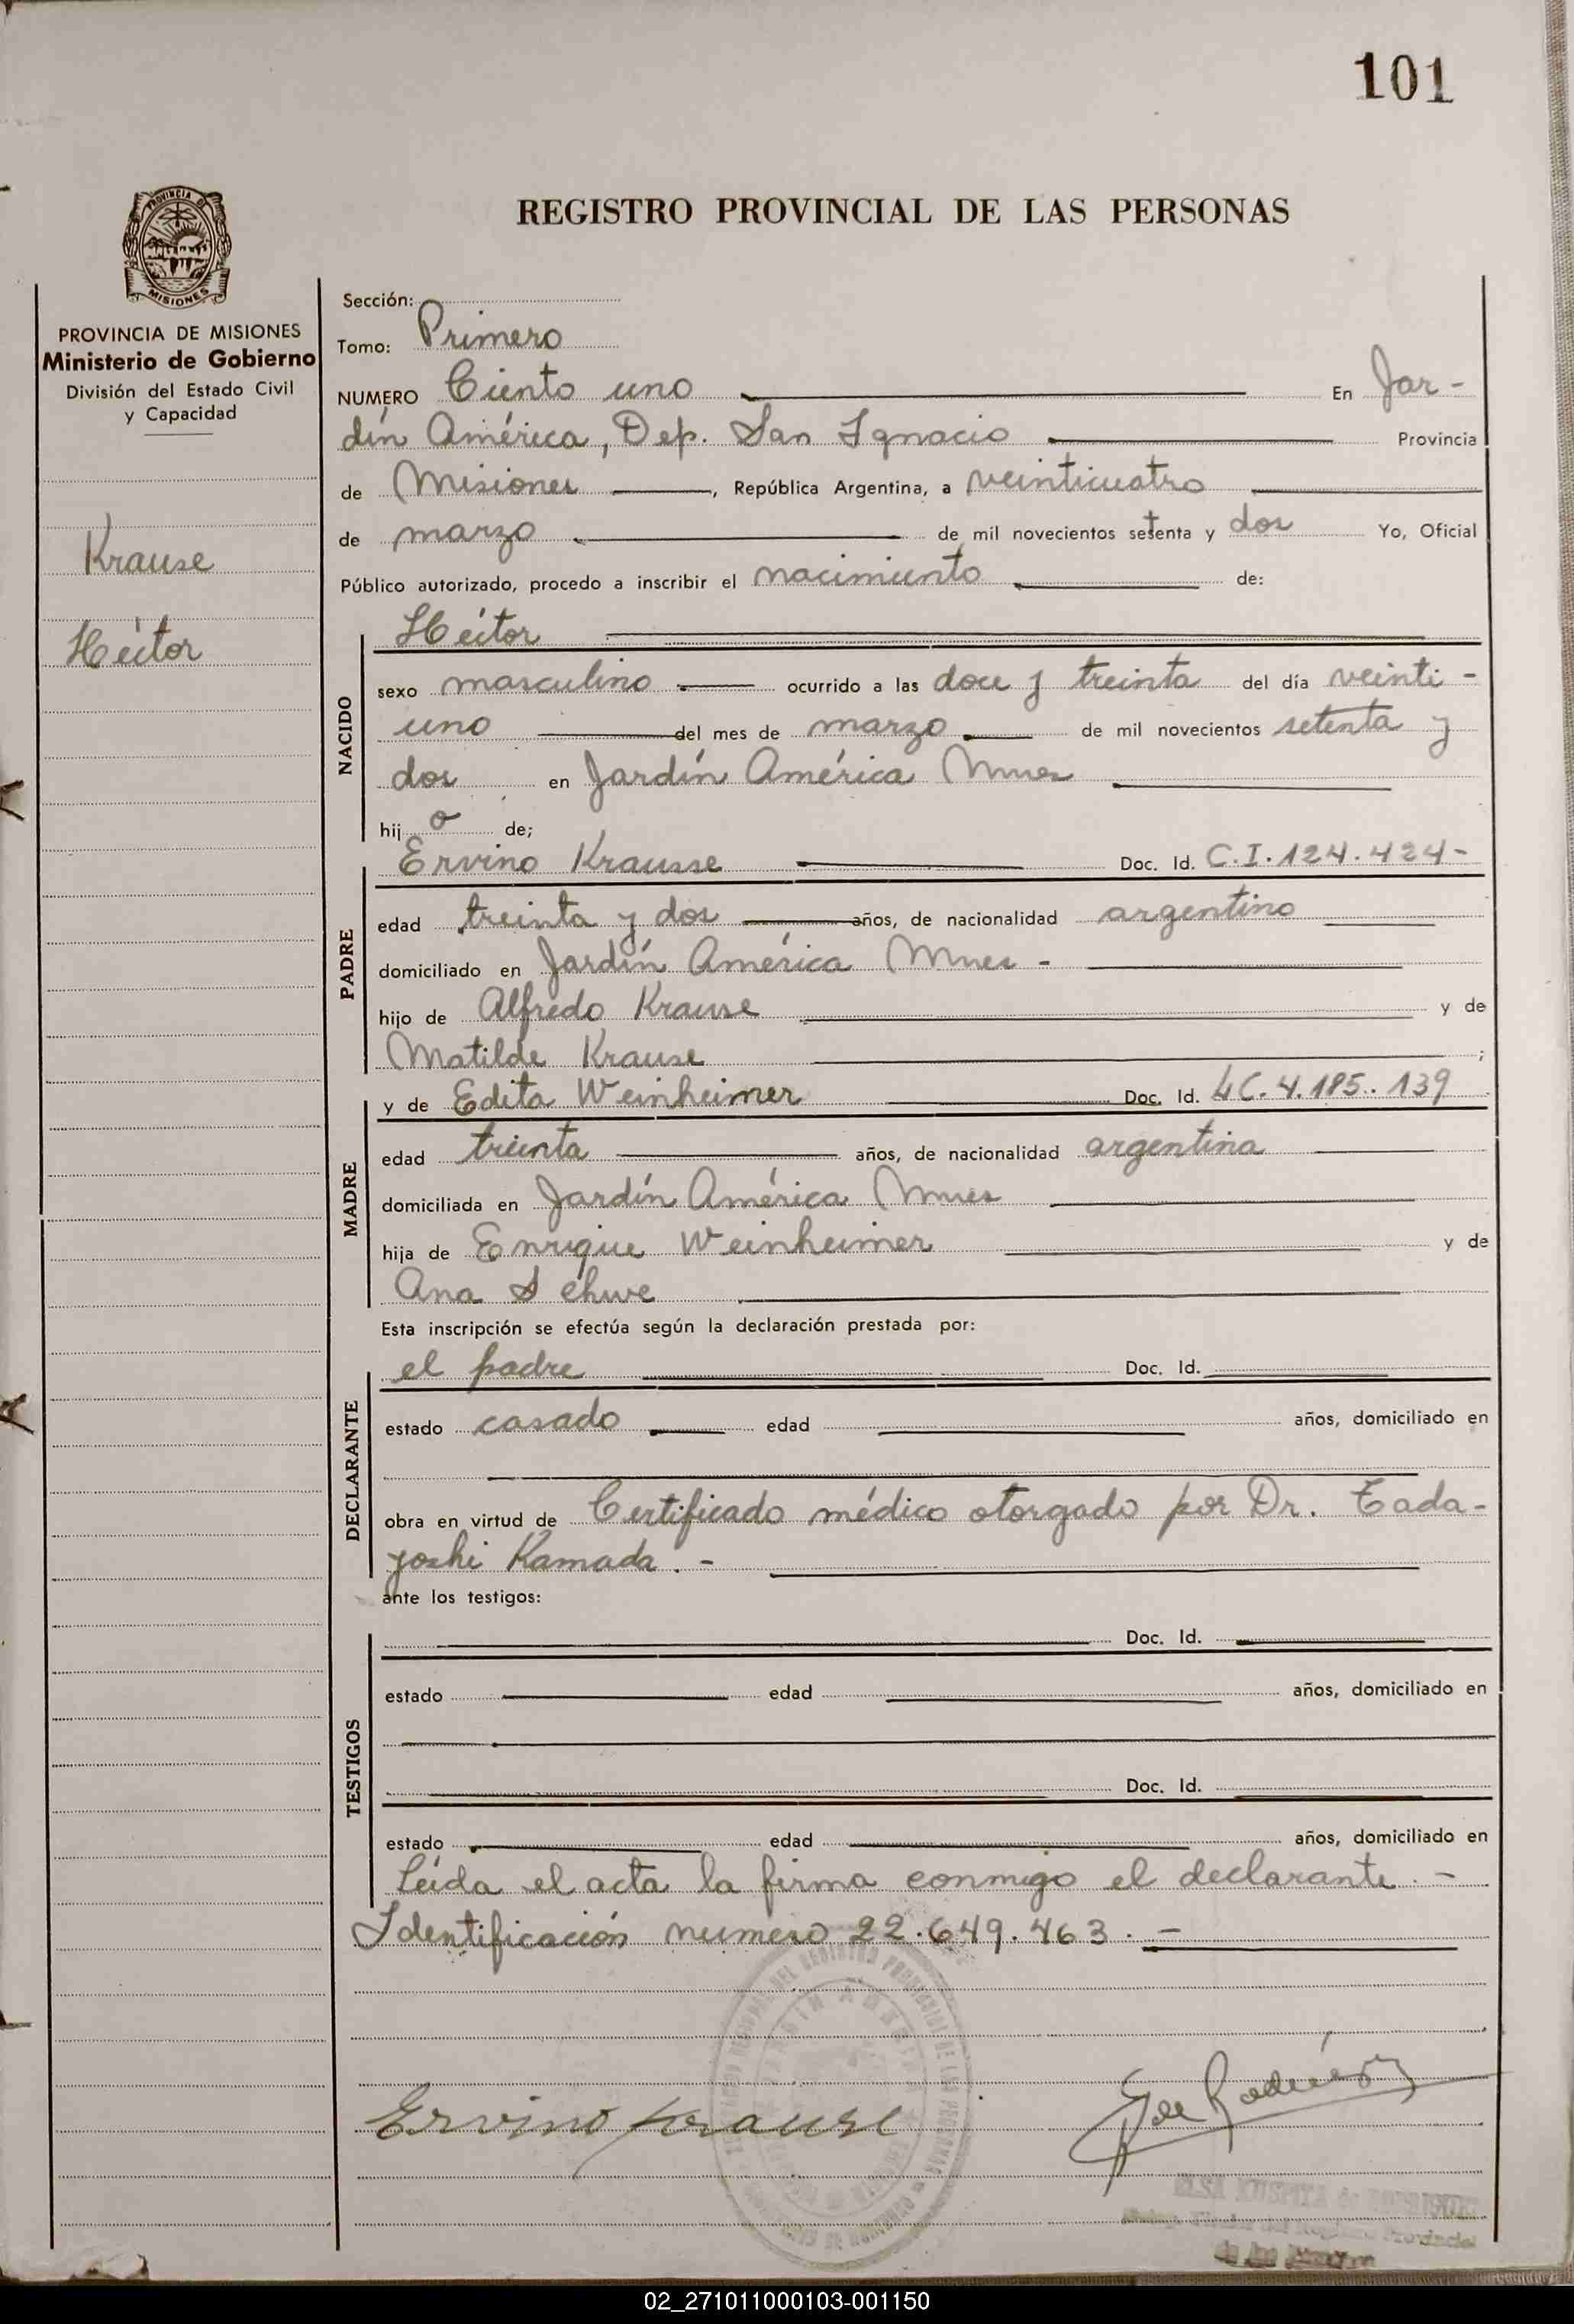 101
PROVINCIA DE
MISIONES
REGISTRO PROVINCIAL DE LAS PERSONAS
PROVINCIA DE MISIONES
Ministerio de Gobierno
División del Estado Civil
y Capacidad
Krause
Héctor
Sección:
Tomo: Primero
NUMERO Ciento uno En Jar-
dín América, Dep. San Ignacio Provincia
de Misiones, República Argentina, a veinticuatro
de marzo de mil novecientos setenta y dos Yo, Oficial
Público autorizado, procedo a inscribir el nacimiento de:
Héctor
NACIDO
sexo masculino ocurrido a las doce y treinta del día veinti-
uno del mes de marzo de mil novecientos setenta y
dos en Jardín América Mnes
hijo de;
Ervino Krausse Doc. Id. C.I. 124.424-
PADRE
edad treinta y dos años, de nacionalidad argentino
domiciliado en Jardín América Mnes -
hijo de Alfredo Krause y de
Matilde Krause ;
y de Edita Weinheimer Doc. Id. LC. 4.185.139
MADRE
edad treinta años, de nacionalidad argentina
domiciliada en Jardín América Mnes
hija de Enrique Weinheimer y de
Ana
Esta inscripción se efectúa según la declaración prestada por:
el padre Doc. Id.
DECLARANTE
estado casado edad años, domiciliado en
obra en virtud de Certificado médico otorgado por Dr. Tada-
yoshi Kamada. -
ante los testigos:
Doc. Id.
TESTIGOS
estado edad años, domiciliado en
Doc. Id.
estado edad años, domiciliado en
Leída el acta la firma conmigo el declarante. -
Identificación numero 22.649.463. -
Ervino Krause
02_271011000103-001150